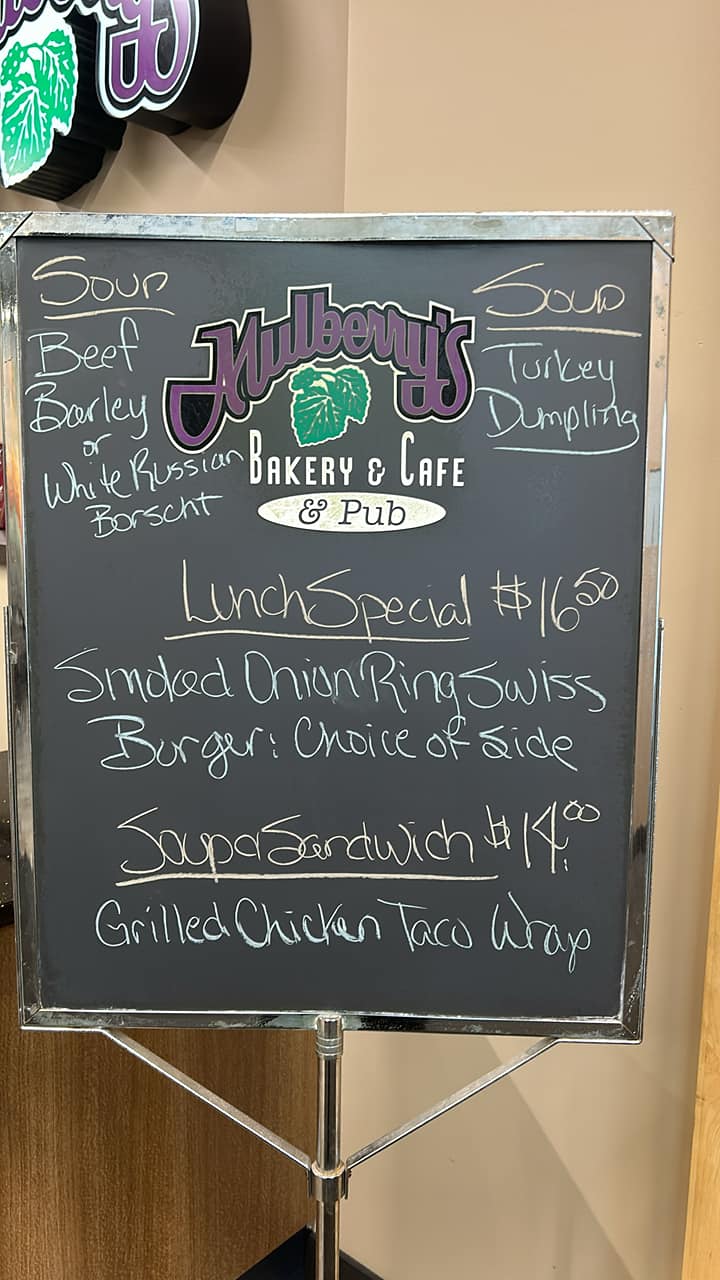 Soup
Beef
Barley
or
White Russian
Borscht
Mulberry's
BAKERY & CAFE
& Pub
Soup
Turkey
Dumpling
Lunch Special $16.50
Smoked Onion Ring Swiss
Burger: Choice of Side
Soup & Sandwich $14.00
Grilled Chicken Taco Wrap